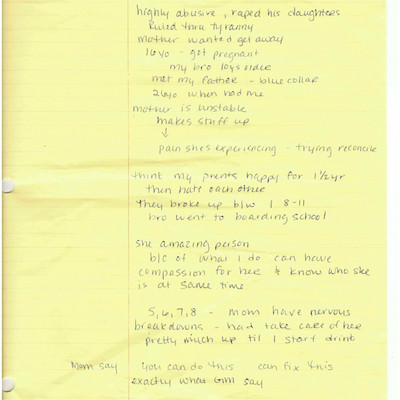 highly abusive, raped his daughters
Ruled thru tyranny
mother wanted get away
16yo - got pregnant
my bro 10ys older
met my father - blue collar
26yo when had me
mother is unstable
makes stuff up
↓
pain shes experiencing - trying reconcile
think my prents happy for 1 1/2 yr
then hate each other
they broke up b/w I 8-11
bro went to boarding school
she amazing person
b/c of what I do can have
compassion for her & know who she
is at same time
5, 6, 7, 8 - mom have nervous
breakdowns - had take care of her
pretty much up til I start drink
Mom say you can do this can fix this
exactly what GM say